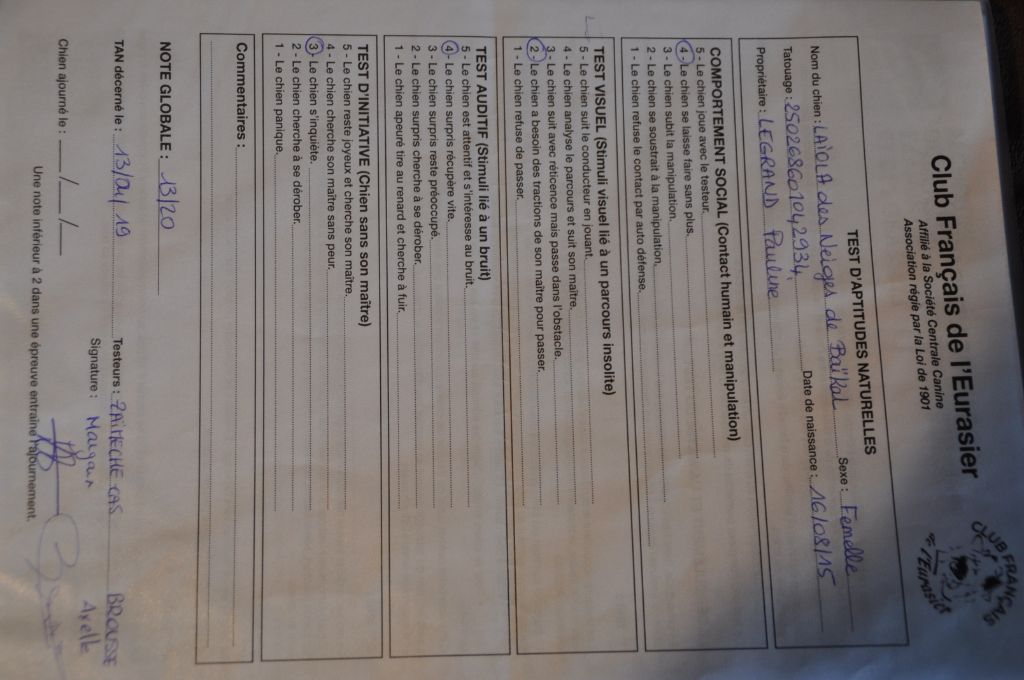 Club Français de l'Eurasier
Affilié à la Société Centrale Canine
Association régie par la Loi de 1901
UB FRANÇAIS
l'Eurasie
TEST D'APTITUDES NATURELLES
Nom du chien : LAÏOLA des Neiges de Baïkal Sexe : Femelle
Tatouage : 250268601042934 Date de naissance : 16/08/15
Propriétaire : LEGRAND Pauline
COMPORTEMENT SOCIAL (Contact humain et manipulation)
5 - Le chien joue avec le testeur.
4 - Le chien se laisse faire sans plus.
3 - Le chien subit la manipulation.
2 - Le chien se soustrait à la manipulation.
1 - Le chien refuse le contact par auto défense.
TEST VISUEL (Stimuli visuel lié à un parcours insolite)
5 - Le chien suit le conducteur en jouant.
4 - Le chien analyse le parcours et suit son maître.
3 - Le chien suit avec réticence mais passe dans l'obstacle.
2 - Le chien a besoin des tractions de son maître pour passer.
1 - Le chien refuse de passer.
TEST AUDITIF (Stimuli lié à un bruit)
5 - Le chien est attentif et s'intéresse au bruit.
4 - Le chien surpris récupère vite.
3 - Le chien surpris reste préoccupé.
2 - Le chien surpris cherche à se dérober.
1 - Le chien apeuré tire au renard et cherche à fuir.
TEST D'INITIATIVE (Chien sans son maître)
5 - Le chien reste joyeux et cherche son maître.
4 - Le chien cherche son maître sans peur.
3 - Le chien s'inquiète.
2 - Le chien cherche à se dérober.
1 - Le chien panique.
Commentaires :
NOTE GLOBALE : 13/20
TAN décerné le : 13/04/19 Testeurs : ZAIMECHE CAS BROUSSE
Signature : Margaux Axelle
Chien ajourné le : / /
Une note inférieur à 2 dans une épreuve entraîne l'ajournement.